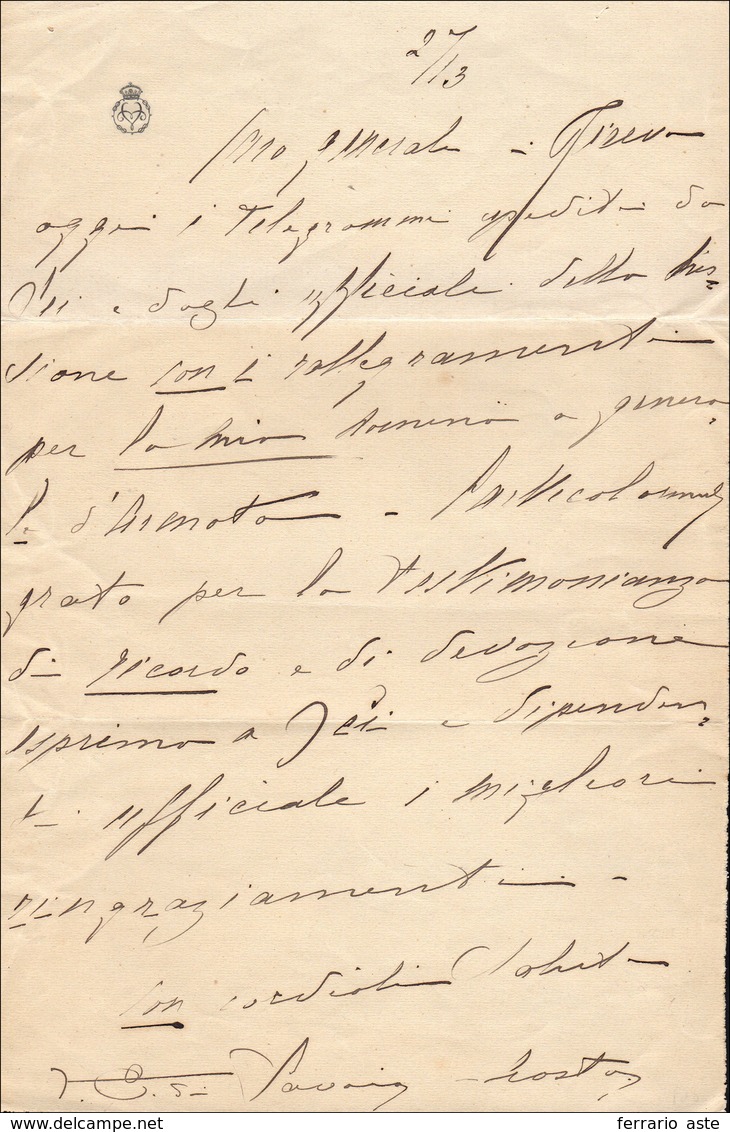 27/13
Caro generale - Ricevo
oggi i telegrammi spediti da
Lei e dagli ufficiale della Mis-
sione con i rallegramenti
per la mia nomina a genera-
le d'Armata - Particolarmente
grato per la testimonianza
di ricordo e di devozione
esprimo a Lei e dipenden-
ti ufficiale i migliori
ringraziamenti -
con cordiali saluti
di Savoia - Aosta
ferrario aste